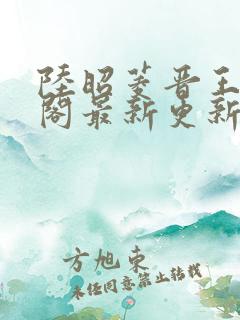 陸昭菱晋王
閣最新更新
方旭東
未经同意禁止转载